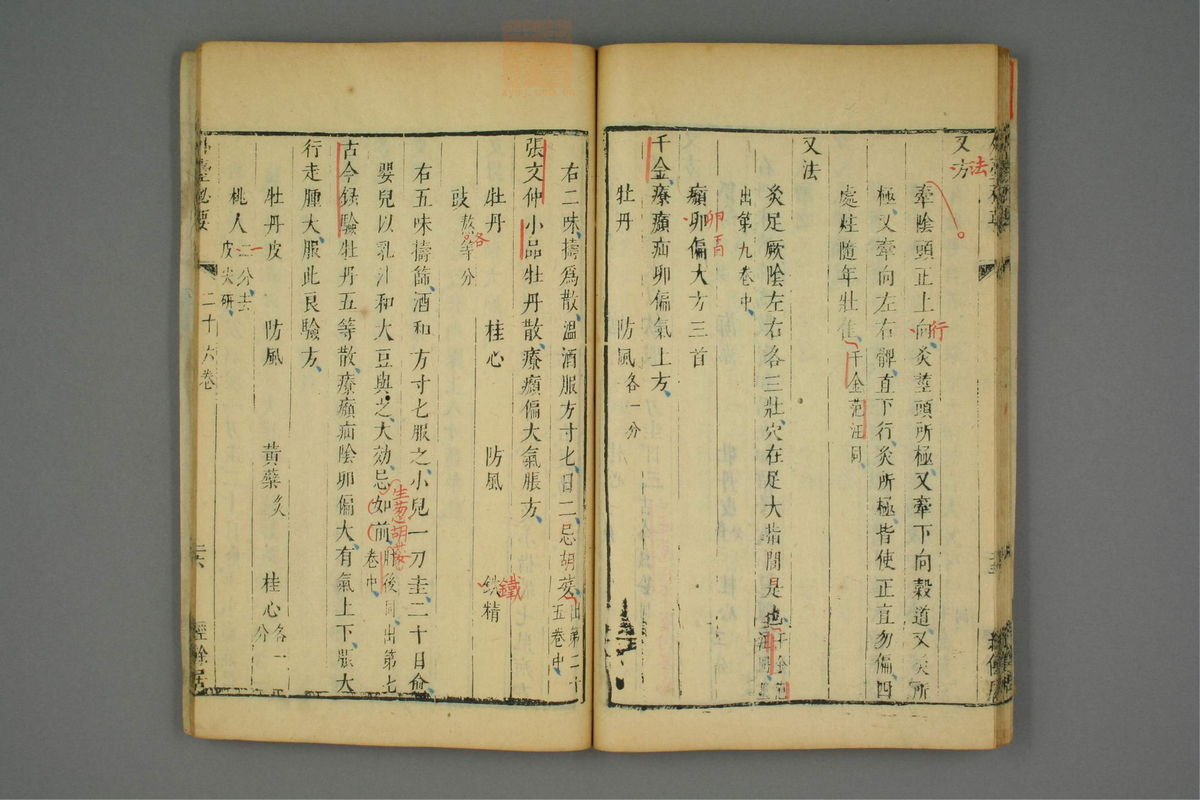 又方
法
牽陰頭正上向灸莖頭所極又牽下向穀道又灸所
行
極又牽向左右髀直下行灸所極皆使正直勿偏四
處炷隨年壯佳千金范汪同
又法
灸足厥陰左右各三壯穴在足大指間是也千金范
出第九卷中
㿗卵偏大方三首
卵
千金療㿗疝卵偏氣上方
牡丹 防風各一分
右二味擣為散温酒服方寸匕日二忌胡荽出第二十
五卷中
張文仲小品牡丹散療㿗偏大氣脹方
牡丹 桂心 防風 鉄精
鐵
豉熬等分
各
右五味擣篩酒和方寸匕服之小兒一刀圭二十日愈
嬰兒以乳汁和大豆與之大効忌如前肘後同出第七
卷中
生葱胡荽
古今録驗牡丹五等散療㿗疝陰卵偏大有氣上下脹大
行走腫大服此良驗方
牡丹皮 防風 黄蘗炙 桂心各一
分
桃人二分去
皮尖研
一
外臺祕要 二十六卷 三六 經餘居